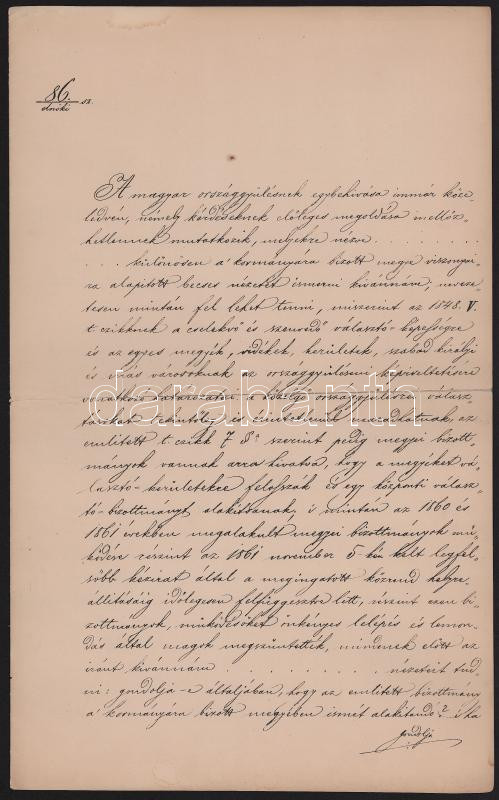 86. sz.
elnöki
A magyar országgyülésnek egybehivása immár köze-
ledvén, némely kérdéseknek előleges megoldása mellőz-
hetlennek mutatkozik, melyekre nézve . . . . . . . . .
. . . . különösen a' kormányára bizott megye viszonyai-
ra alapitott becses nézetét ismerni kivánnám, neveze-
tesen miután fel lehet tenni, miszerint az 1848. V.
t. czikknek a cselekvő és szenvedő választó-képességre
és az egyes megyék, vidékek, kerületek, szabad királyi
és más városoknak az országgyülésen képviseltetésére
vonatkozó határozatai a közelgő országgyülési válasz-
tásokat illetőleg érintetlenül maradhatnak, az
emlitett t. czikk 7 §a szerint pedig megyei bizott-
mányok vannak arra hivatva, hogy a megyéket vá-
lasztó-kerületekre felosszák és egy központi válasz-
tó-bizottmányt alakitsanak, s miután az 1860 és
1861 években megalakult megyei bizottmányok mü-
ködése részint az 1861 november 5-én kelt legfel-
sőbb kézirat által a megingatott közrend helyre-
állitásáig időlegesen felfüggesztve lett, részint ezen bi-
zottmányok, müködésöket önkényes lelépés és lemon-
dás által magok megszüntették, mindenek előtt az
iránt kivánnám . . . . . . . . . . . . nézeteit tud-
ni: gondolja-e általjában, hogy az emlitett bizottmány
a' kormányára bizott megyében ismét alakitandó? s ha
gondolja
darabanth